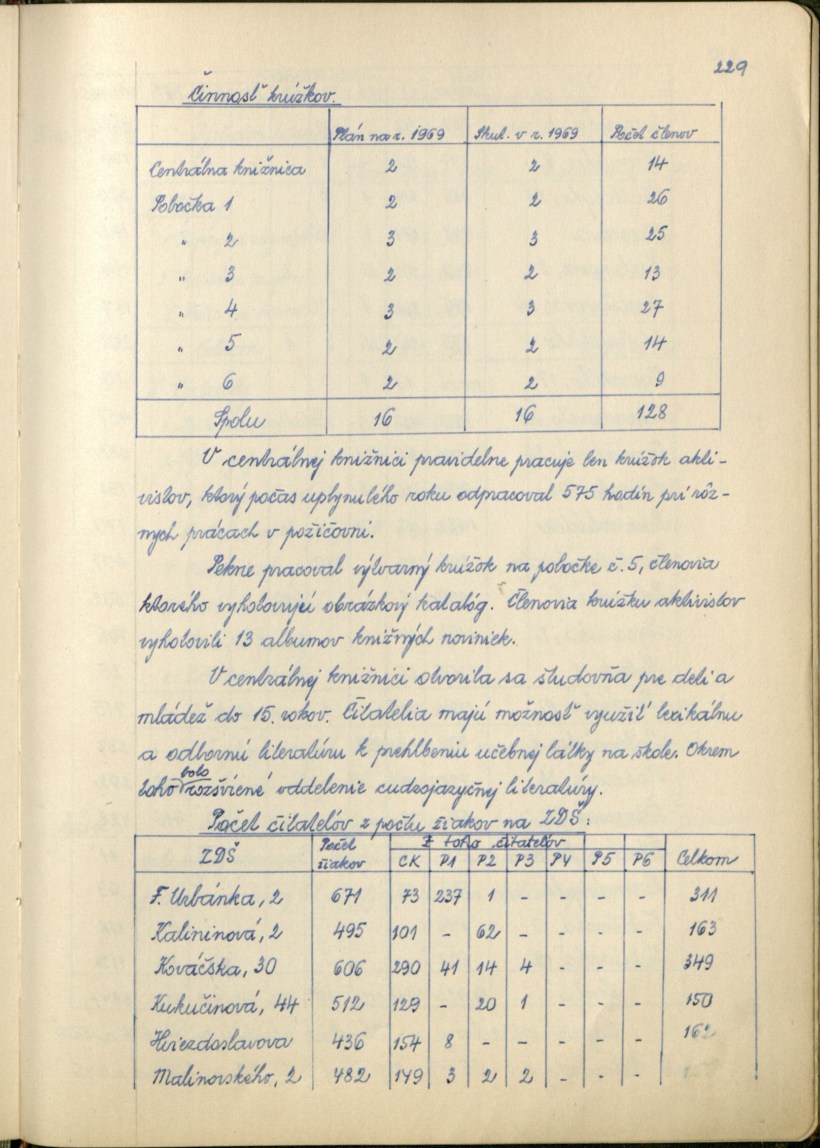 229
Činnosť krúžkov.
Plán na r. 1969 Skut. v r. 1969 Počet členov
Centrálna knižnica 2 2 14
Pobočka 1 2 2 26
" 2 3 3 25
" 3 2 2 13
" 4 3 3 27
" 5 2 2 14
" 6 2 2 9
Spolu 16 16 128
V centrálnej knižnici pravidelne pracuje len krúžok akti-
vistov, ktorý počas uplynulého roku odpracoval 575 hodín pri rôz-
nych prácach v požičovni.
Pekne pracoval výtvarný krúžok na pobočke č. 5, členovia
ktorého vyhotovujú obrázkový katalóg. Členovia krúžku aktivistov
vyhotovili 13 albumov knižných noviniek.
V centrálnej knižnici otvorila sa študovňa pre deti a
mládež do 15. rokov. Čitatelia majú možnosť využiť lexikálnu
a odbornú literatúru k prehĺbeniu učebnej látky na škole. Okrem
toho bolo rozšírené oddelenie cudzojazyčnej literatúry.
Počet čitateľov z počtu žiakov na ZDŠ:
ZDŠ Počet žiakov Z toho čitateľov Celkom
CK P1 P2 P3 P4 P5 P6
F. Urbánka, 2 671 73 237 1 - - - - 311
Kalininová, 2 495 101 - 62 - - - - 163
Kováčska, 30 606 290 41 14 4 - - - 349
Kukučínová, 44 512 129 - 20 1 - - - 150
Hviezdoslavova 436 154 8 - - - - - 162
Malinovského, 2 482 149 3 2 2 - - -